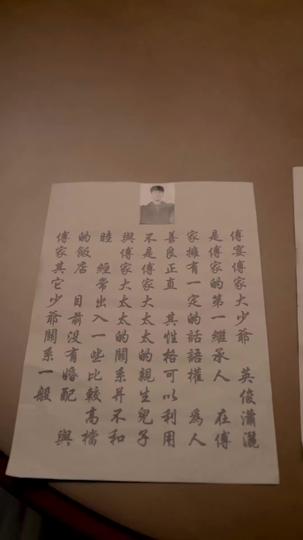 傅宴傅家大少爺 英俊瀟灑
是傅家的第一繼承人 在傅
家擁有一定的話語權 為人
善良正直 其性格可以利用
不是傅家大太太的親生兒子
與傅家大太太的關系并不和
睦 經常出入一些比較高檔
的飯店 目前没有婚配 與
傅家其它少爺關系一般